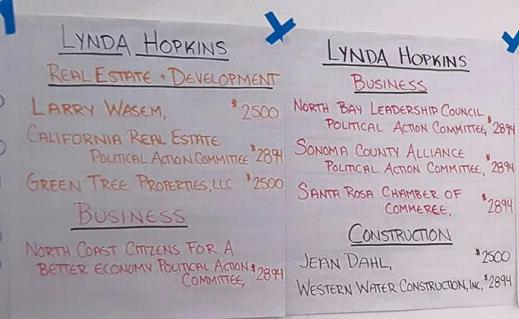 LYNDA HOPKINS
REAL ESTATE + DEVELOPMENT
LARRY WASEM, $2500
CALIFORNIA REAL ESTATE
POLITICAL ACTION COMMITTEE $2894
GREEN TREE PROPERTIES, LLC $2500
BUSINESS
NORTH COAST CITIZENS FOR A
BETTER ECONOMY POLITICAL ACTION
COMMITTEE, $2894
LYNDA HOPKINS
BUSINESS
NORTH BAY LEADERSHIP COUNCIL
POLITICAL ACTION COMMITTEE, $2894
SONOMA COUNTY ALLIANCE
POLITICAL ACTION COMMITTEE, $2894
SANTA ROSA CHAMBER OF
COMMERCE, $2894
CONSTRUCTION
JEAN DAHL, $2500
WESTERN WATER CONSTRUCTION, INC, $2894